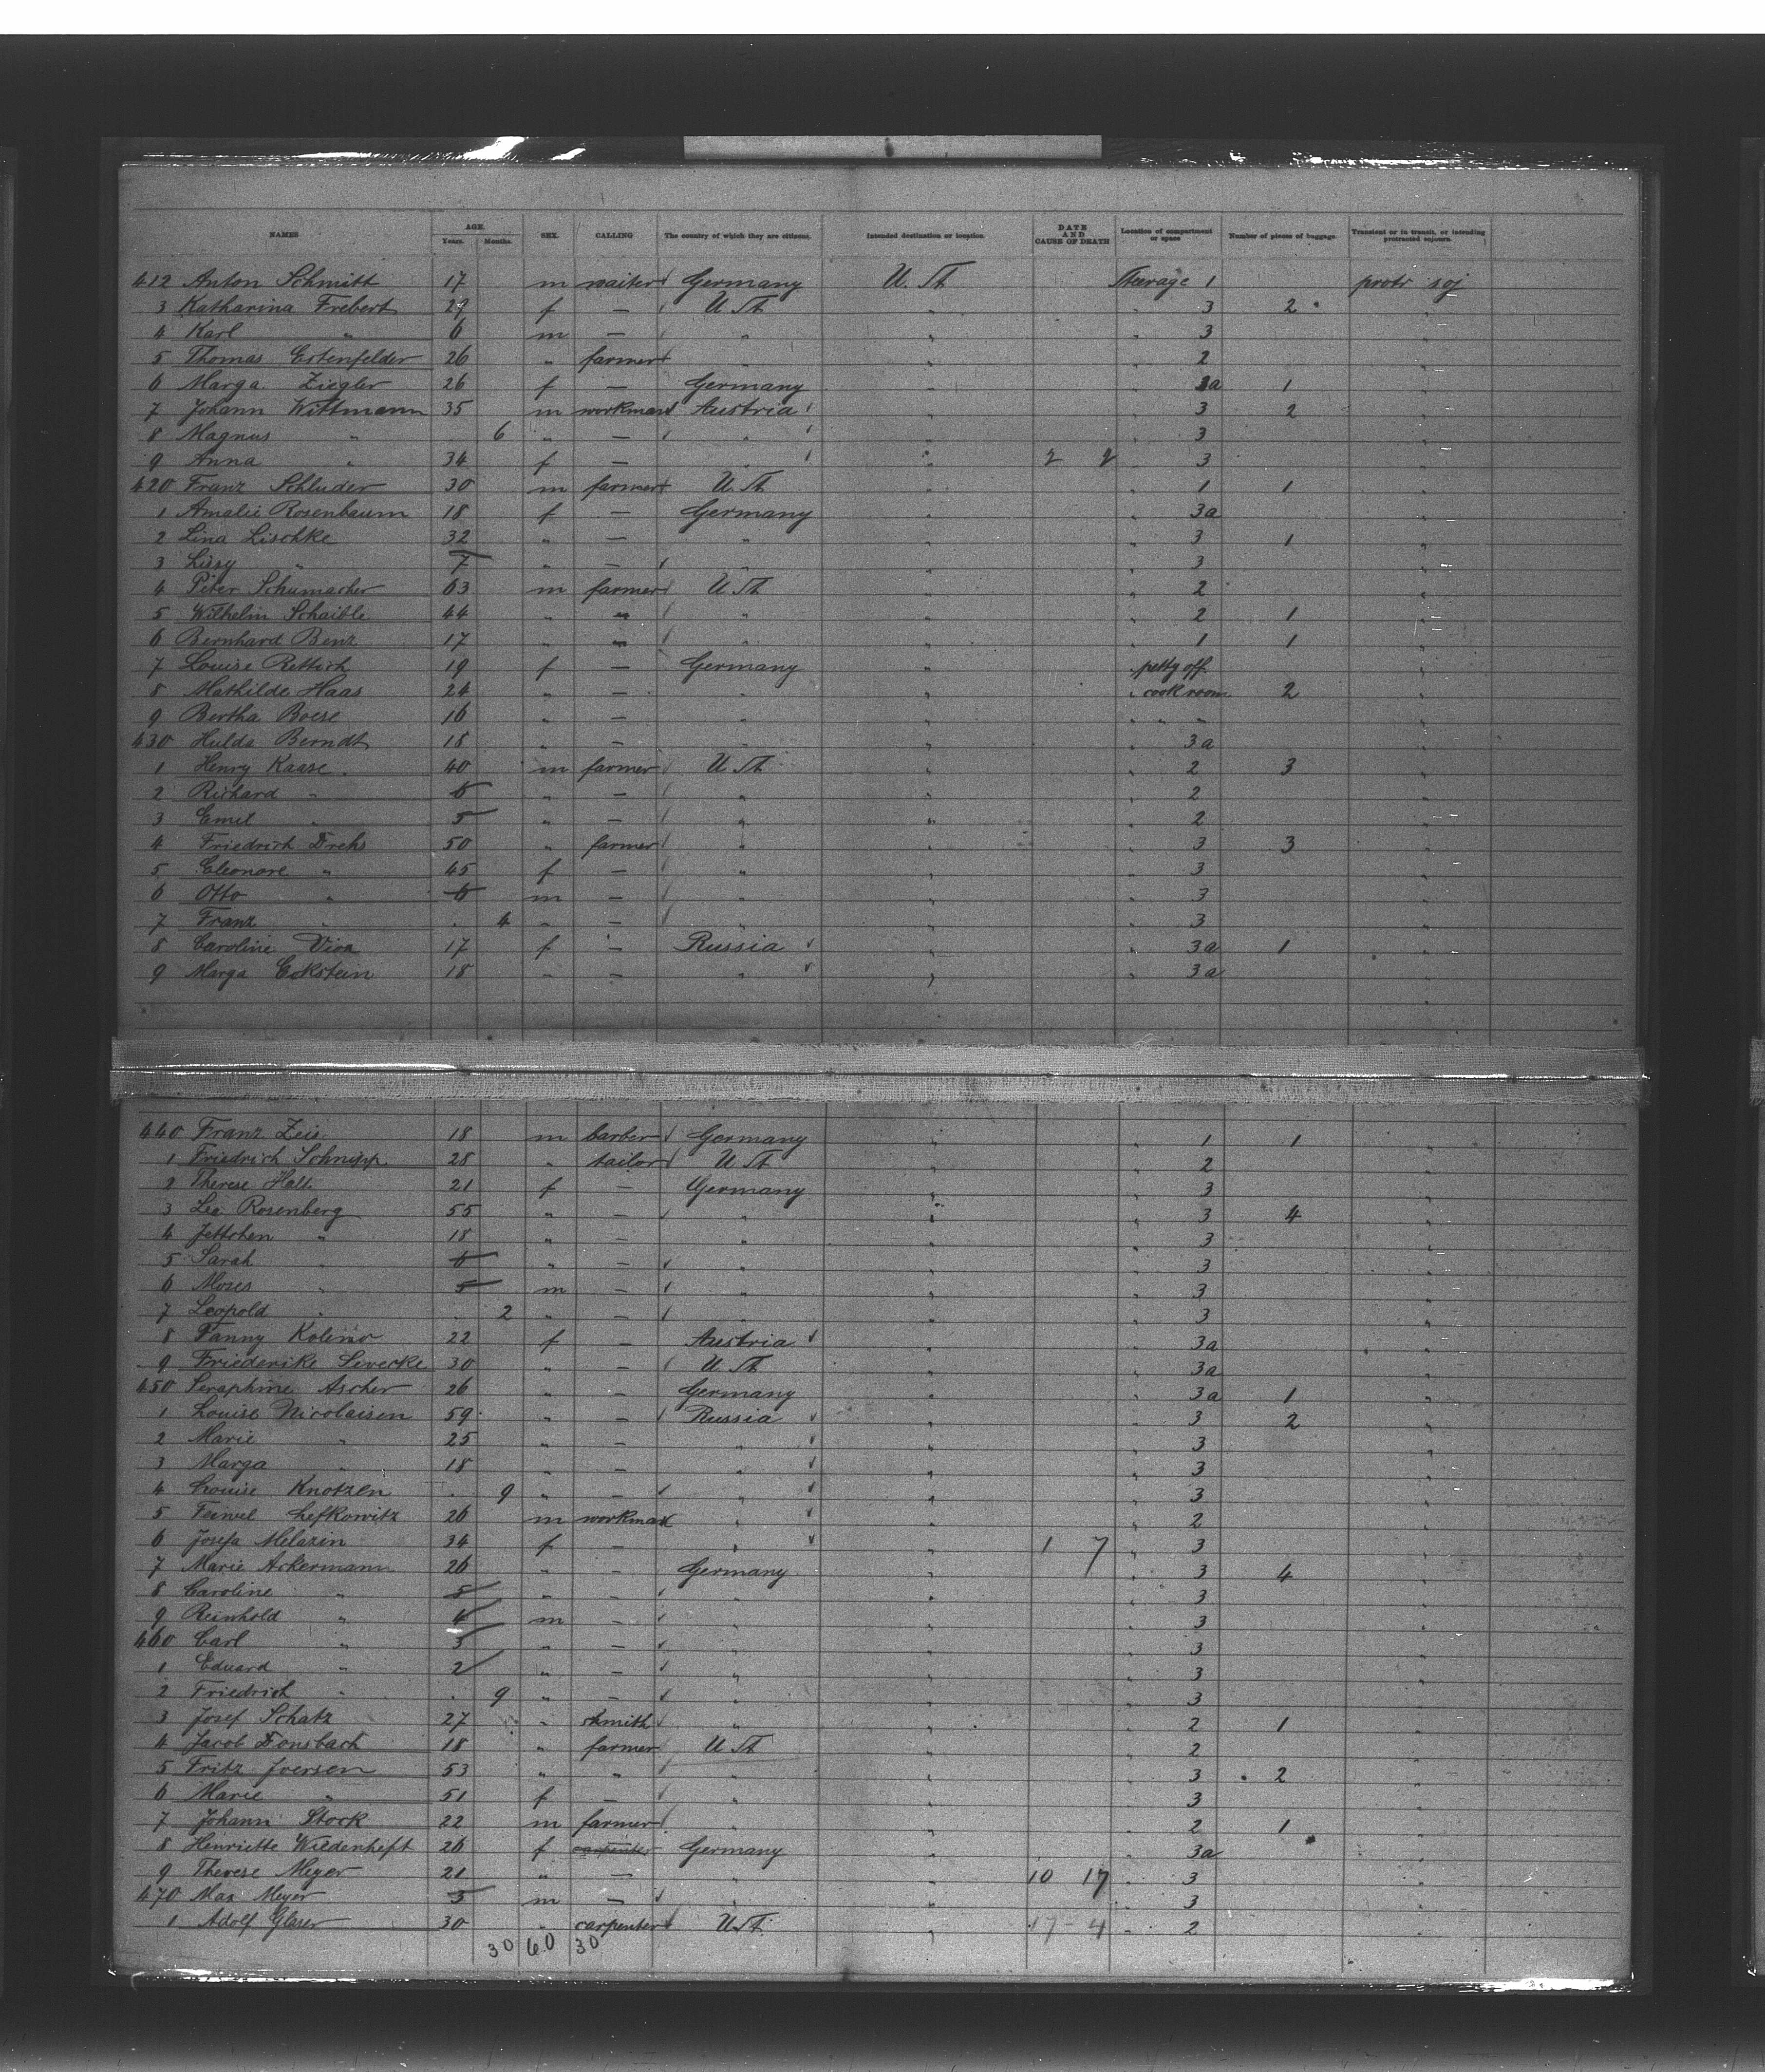 NAMES AGE. Years. Months. SEX. CALLING The country of which they are citizens. Intended destination or location. DATE AND CAUSE OF DEATH Location of compartment or space Number of pieces of baggage. Transient or in transit, or intending protracted sojourn.
412 Anton Schmitt 17 m waiter Germany U. St. Steerage 1 protr soj
3 Katharina Frebert 27 f — U St. " 3 2 "
4 Karl " 6 m — " " " 3 "
5 Thomas Ertenfelder 26 " farmer " " 2 "
6 Marga. Ziegler 26 f — Germany " " 3a 1 "
7 Johann Wittmann 35 m workman Austria " " 3 2 "
8 Magnus " 6 " — " " " 3 "
9 Anna " 34 f — " " 2 " 3 "
420 Franz Schluder 30 m farmer U. St. " " 1 1 "
1 Amalie Rosenbaum 18 f — Germany " " 3a "
2 Lina Lischke 32 " — " " " 3 1 "
3 Lissy " 7 " — " " " 3 "
4 Peter Schumacher 63 m farmer U St. " " 2 "
5 Wilhelm Schaible 44 " " " " " 2 1 "
6 Bernhard Benz 17 " " " " " 1 1 "
7 Louise Rettich 19 f — Germany " " petty off.
8 Mathilde Haas 24 " — " " " cook room 2 "
9 Bertha Boese 16 " — " " " " " "
430 Hulda Berndt 18 " — " " " 3a "
1 Henry Kaase 40 m farmer U St. " " 2 3 "
2 Richard " 6 " — " " " 2 "
3 Emil " 5 " — " " " 2 "
4 Friedrich Drehs 50 " farmer " " " 3 3 "
5 Eleonore " 45 f — " " " 3 "
6 Otto " 6 m — " " " 3 "
7 Franz " 4 " — " " " 3 "
8 Caroline 17 f — Russia " " 3a 1 "
9 Marga Eckstein 18 — — " " " 3a "
440 Franz Zeis 18 m barber Germany " " 1 1 "
1 Friedrich Schnepp 28 " tailor U St. " " 2 "
2 Therese Hall 21 f — Germany " " 3 "
3 Lea Rosenberg 55 " — " " " 3 4 "
4 Jettchen " 18 " — " " " 3 "
5 Sarah " 6 " — " " " 3 "
6 Moses " 5 m — " " " 3 "
7 Leopold " 2 " — " " " 3 "
8 Fanny 22 f — Austria " " 3a "
9 Friederike Sevecke 30 " — U St. " " 3a "
450 Seraphine Ascher 26 " — Germany " " 3a 1 "
1 Louise Nicolaisen 59 " — Russia " " 3 2 "
2 Marie " 25 " — " " " 3 "
3 Marga " 18 " — " " " 3 "
4 Louise Knotzen 9 " — " " " 3 "
5 Feiwel Lefkowitz 26 m workman " " " 2 "
6 Josefa Melazin 34 f — " " 1 7 " 3 "
7 Marie Ackermann 26 " — Germany " " 3 4 "
8 Caroline " 5 " — " " " 3 "
9 Reinhold " 4 m — " " " 3 "
460 Carl " 3 " — " " " 3 "
1 Eduard " 2 " — " " " 3 "
2 Friedrich " 9 " — " " " 3 "
3 Josef Schatz 27 " smith " " " 2 1 "
4 Jacob Donsbach 18 " farmer U St. " " 2 "
5 Fritz Joersen 53 " " " " " 3 2 "
6 Marie " 51 f — " " " 3 "
7 Johann Stock 22 m farmer " " " 2 1 "
8 Henriette Wildenheft 26 f carpenter Germany " " 3a "
9 Therese Meyer 21 " — " " 10 17 " 3 "
470 Max Meyer 3 m — " " " 3 "
1 Adolf Glaser 30 " carpenter U St. " 17 - 4 " 2 "
30 60 30